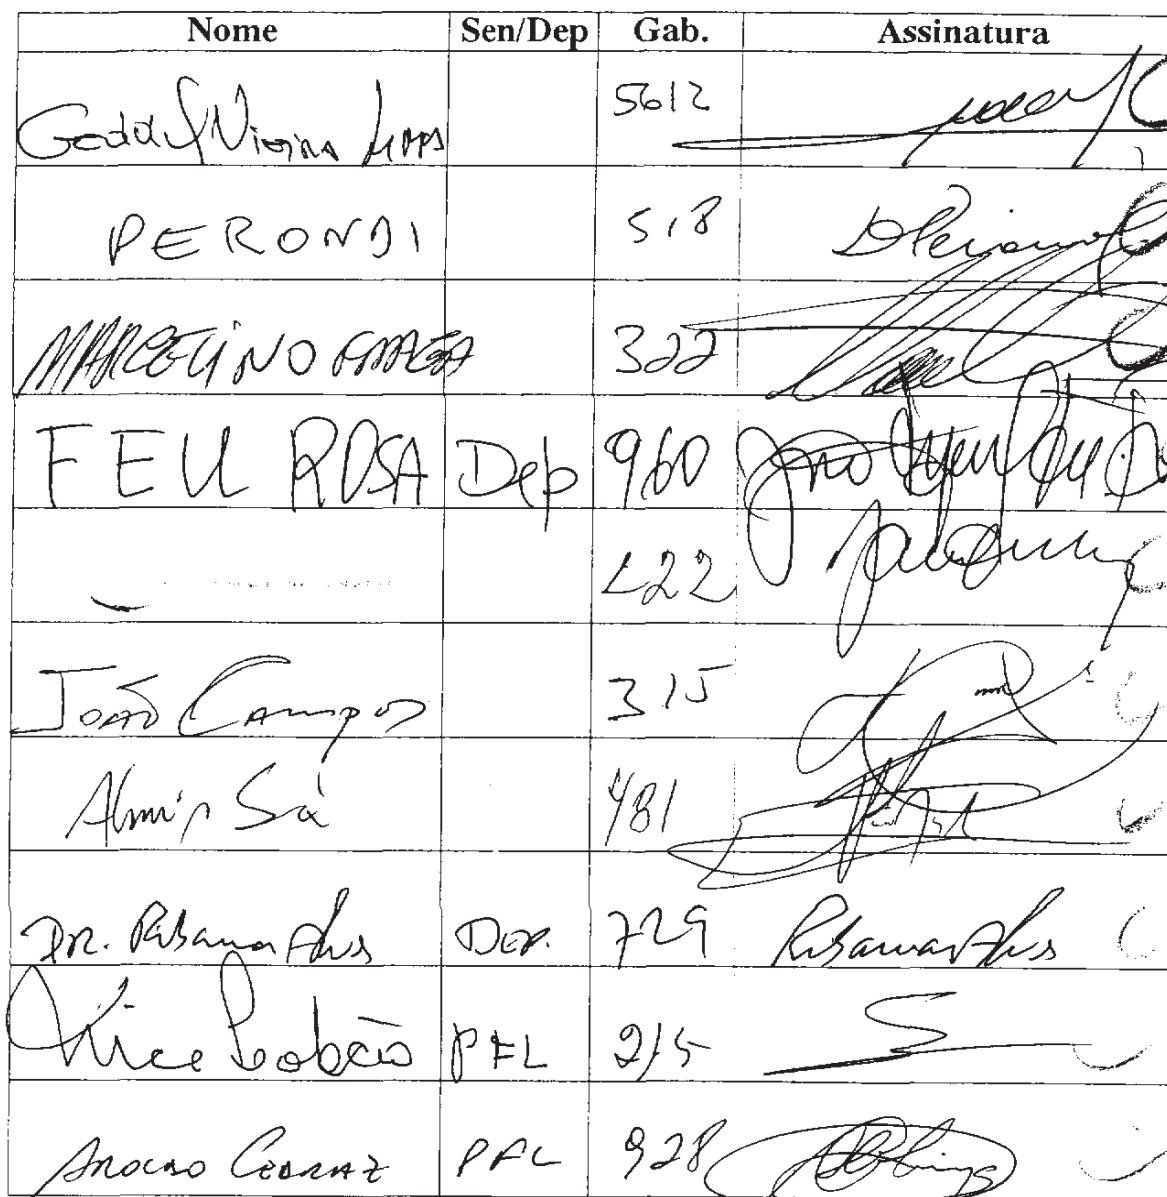 Nome Sen/Dep Gab. Assinatura
Geddel Vieira Lima 5612
PERONDI 518 DPerondi
MARCELINO FRAGA 322
FEU ROSA Dep 960
222
João Campos 315
Almir Sá 481
DR. Ribamar Alves DEP. 729 Ribamar Alves
Nice Lobão PFL 215
AROLDO CEDRAZ PFL 928